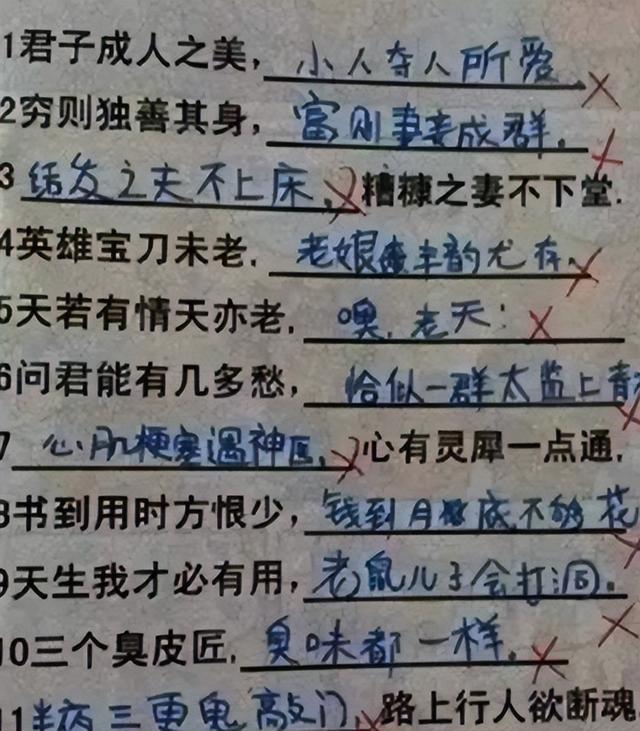 1君子成人之美，小人夺人所爱
2穷则独善其身，富则妻妾成群。
3结发之夫不上床，糟糠之妻不下堂.
4英雄宝刀未老，老娘丰韵尤存
5天若有情天亦老，噢，老天！
6问君能有几多愁，恰似一群太监上青
7心肌梗塞遇神医，心有灵犀一点通，
8书到用时方恨少，钱到月底不够花
9天生我才必有用，老鼠儿子会打洞。
10三个臭皮匠，臭味都一样。
11半夜三更鬼敲门，路上行人欲断魂